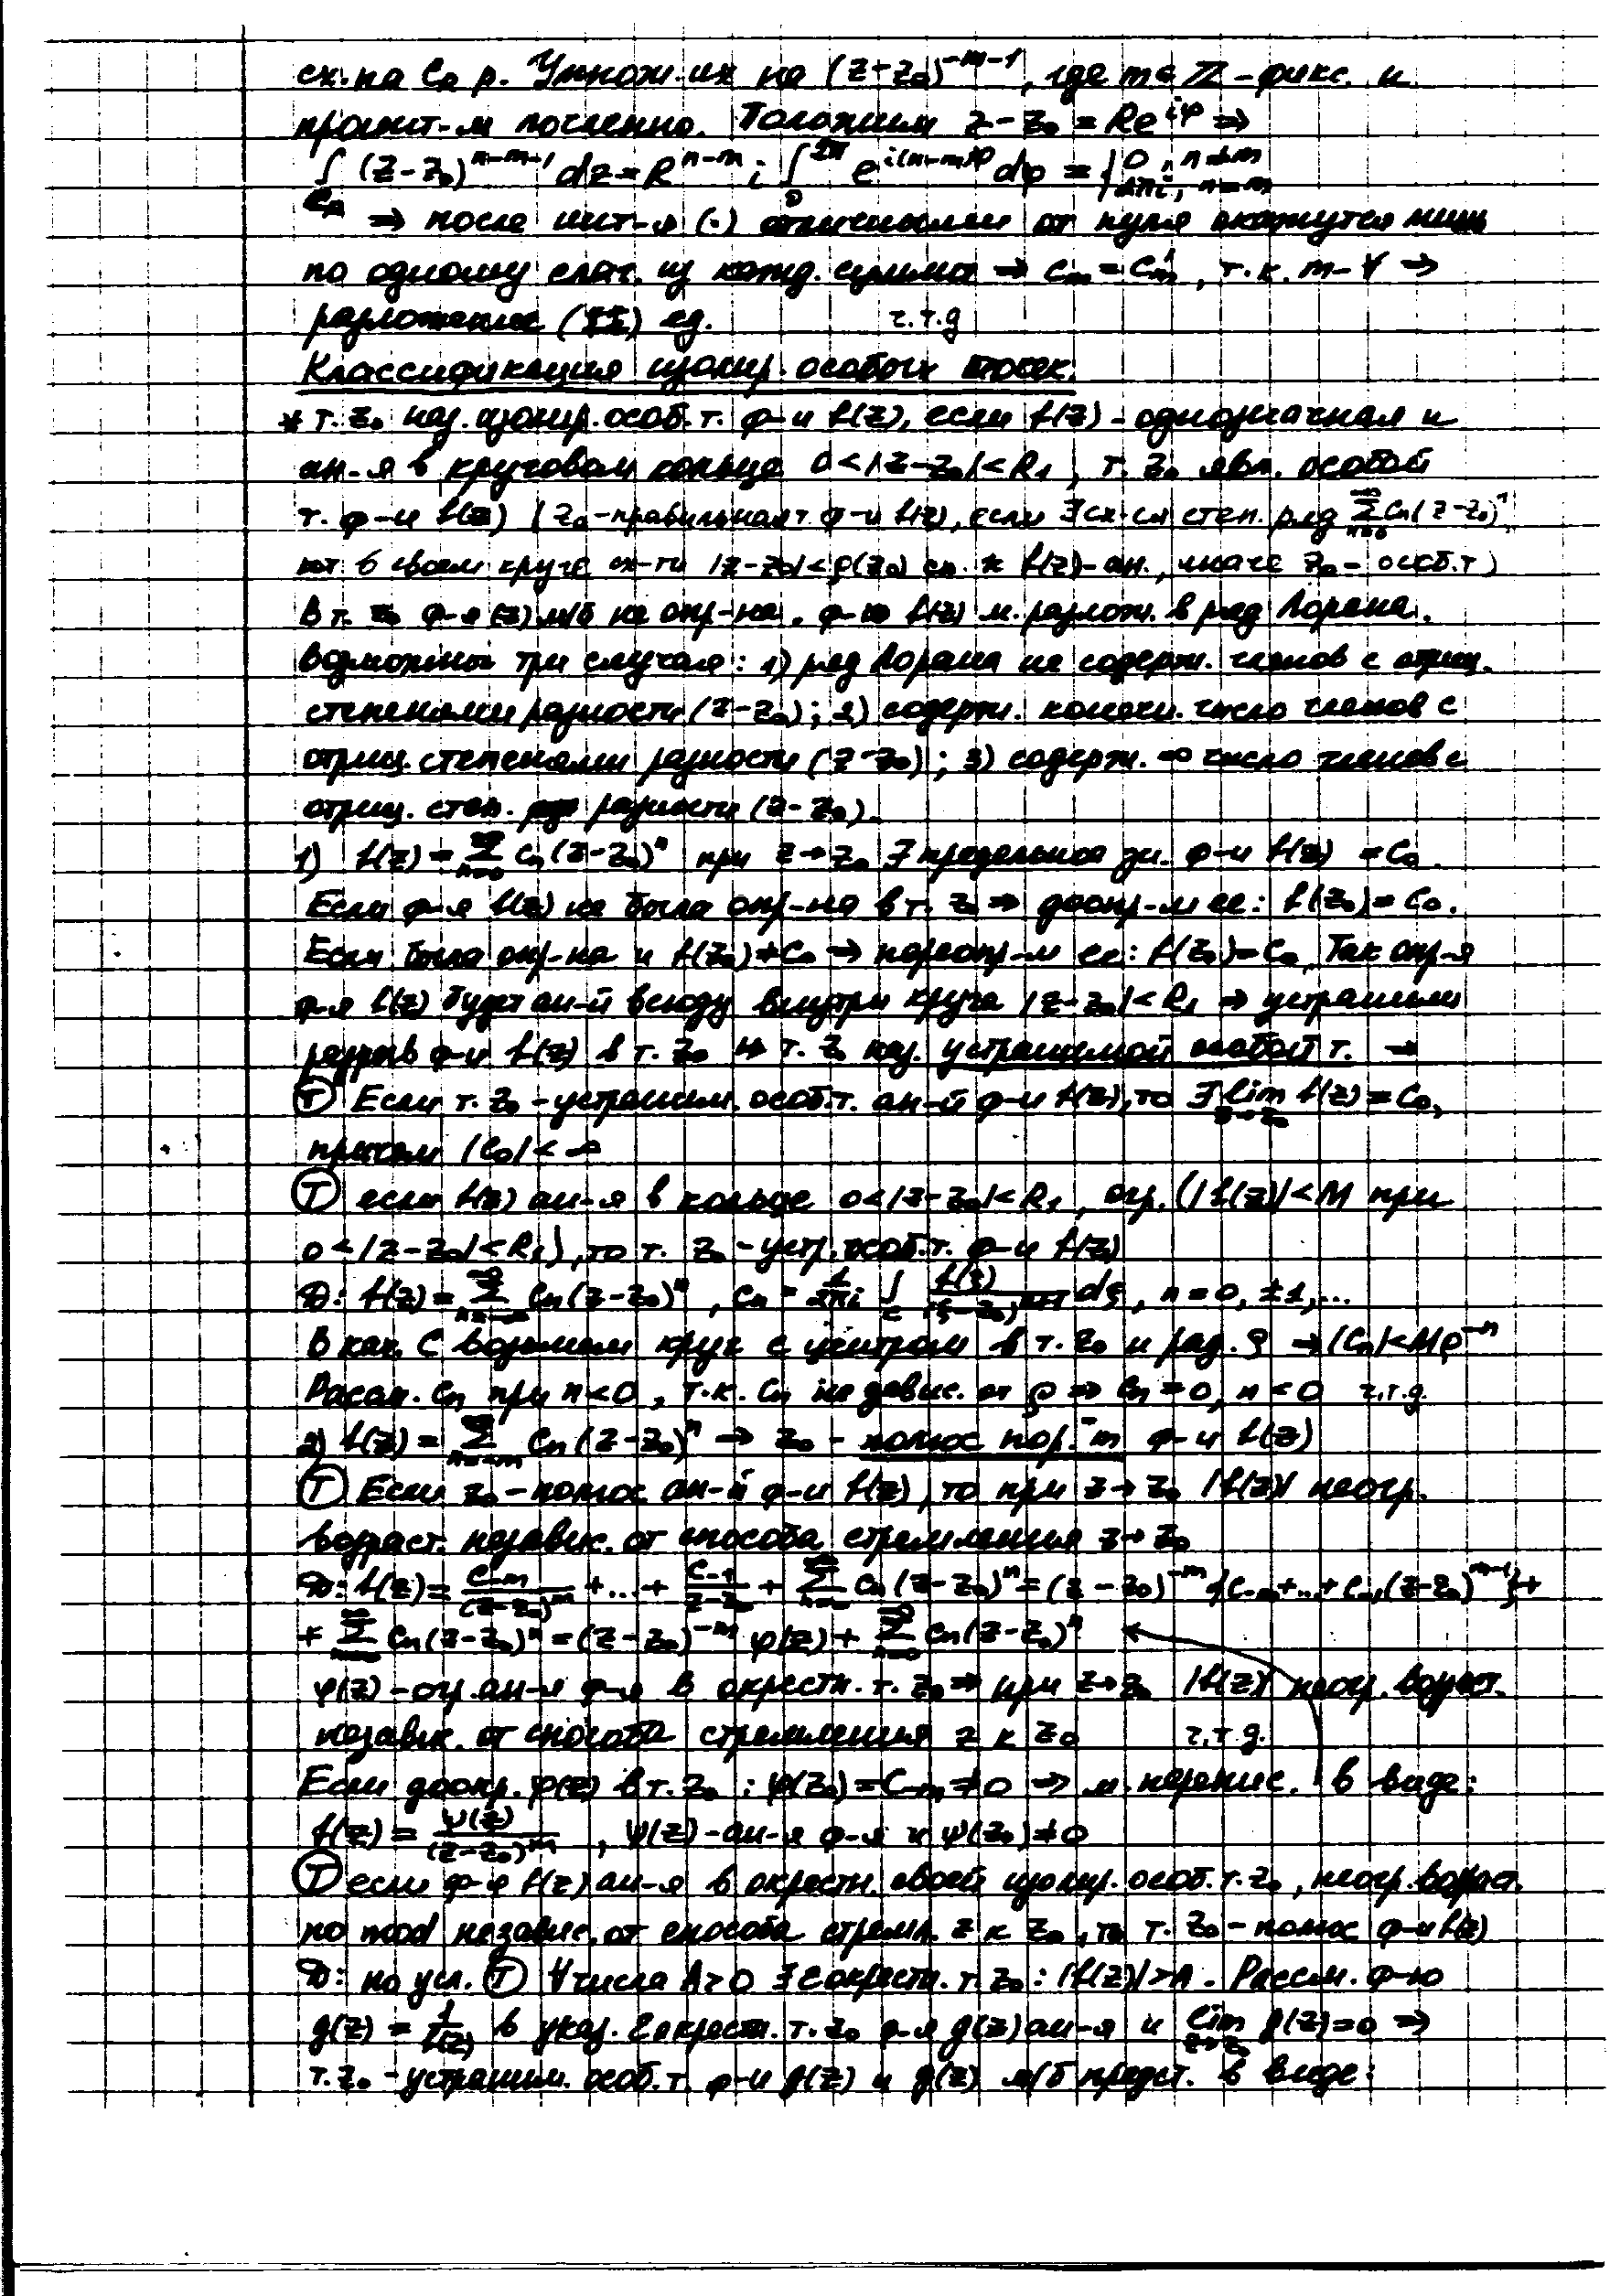 сх. на C_R р. Умнож. их на (z-z₀)^{-m-1}, где m∈ℤ - фикс. и
проинт-м почленно. Положим z-z₀ = Re^{iφ} ⇒
∫_{C_R} (z-z₀)^{n-m-1} dz = R^{n-m} i ∫_0^{2π} e^{i(n-m)φ} dφ = {0, n≠m; 2πi, n=m
⇒ после инт-я (·) отличными от нуля окажутся лишь
по одному слаг. из кажд. суммы ⇒ c_m = c_m', т.к. m-∀ ⇒
разложение () ед. ч.т.д
Классификация изолир. особых точек.
* т. z₀ наз. изолир. особ. т. ф-и f(z), если f(z) - однозначная и
ан-я в круговом кольце 0<|z-z₀|<R₁, т. z₀ явл. особой
т. ф-и f(z) (z₀ - правильная т. ф-и f(z), если ∃ сх-ся степ. ряд ∑_{n=0}^∞ c_n(z-z₀)^n,
кот. в своем круге сх-ти |z-z₀|<ρ(z₀) сх. к f(z) - ан., иначе z₀ - особ. т)
В т. z₀ ф-я f(z) м/б не опр-на. ф-ю f(z) м. разлож. в ряд Лорана.
Возможны три случая: 1) ряд Лорана не содерж. членов с отриц.
степенями разности (z-z₀); 2) содерж. конечн. число членов с
отриц. степенями разности (z-z₀); 3) содерж. ∞ число членов с
отриц. степ. разности (z-z₀).
1) f(z) = ∑_{n=0}^∞ c_n(z-z₀)^n при z→z₀ ∃ предельное зн. ф-и f(z) = c₀.
Если ф-я f(z) не была опр-на в т. z₀ ⇒ доопр-м ее: f(z₀) = c₀.
Если была опр-на и f(z₀)≠c₀ ⇒ переопр-м ее: f(z₀)=c₀. Так опр-я
ф-я f(z) будет ан-й всюду внутри круга |z-z₀|<R₁ ⇒ устранили
разрыв ф-и f(z) в т. z₀ ⇒ т. z₀ наз. устранимой особой т. →
(Т) Если т. z₀ - устраним. особ. т. ан-й ф-и f(z), то ∃ lim_{z→z₀} f(z) = c₀,
причем |c₀| < ∞
(Т) если f(z) ан-я в кольце 0<|z-z₀|<R₁, огр. (|f(z)|<M при
0<|z-z₀|<R₁), то т. z₀ - устр. особ. т. ф-и f(z)
D: f(z) = ∑_{n=-∞}^∞ c_n(z-z₀)^n, c_n = 1/(2πi) ∫_C f(ξ)/(ξ-z₀)^{n+1} dξ, n = 0, ±1,...
В кач. C возьмем круг с центром в т. z₀ и рад. ρ → |c_n|<Mρ^{-n}
Рассм. c_n при n<0, т.к. c_n не завис. от ρ ⇒ c_n = 0, n<0 ч.т.д.
2) f(z) = ∑_{n=-m}^∞ c_n(z-z₀)^n → z₀ - полюс пор. m ф-и f(z)
(Т) Если z₀ - полюс ан-й ф-и f(z), то при z→z₀ |f(z)| неогр.
возраст. независ. от способа стремления z→z₀
D: f(z) = c_{-m}/(z-z₀)^m + ... + c_{-1}/(z-z₀) + ∑_{n=0}^∞ c_n(z-z₀)^n = (z-z₀)^{-m}{c_{-m}+...+c_{-1}(z-z₀)^{m-1}}+
+ ∑_{n=0}^∞ c_n(z-z₀)^n = (z-z₀)^{-m} φ(z) + ∑_{n=0}^∞ c_n(z-z₀)^n
φ(z) - огр. ан-я ф-я в окрестн. т. z₀ ⇒ при z→z₀ |f(z)| неогр. возраст.
независ. от способа стремления z к z₀ ч.т.д.
Если доопр. φ(z) в т. z₀: φ(z₀) = c_{-m} ≠ 0 ⇒ м. перепис. в виде:
f(z) = ψ(z)/(z-z₀)^m, ψ(z) - ан-я ф-я и ψ(z₀)≠0
(Т) если ф-я f(z) ан-я в окрестн. своей изолир. особ. т. z₀, неогр. возраст.
по mod независ. от способа стремл. z к z₀, то т. z₀ - полюс ф-и f(z)
D: по усл. (Т) ∀ числа A>0 ∃ ε окрестн. т. z₀: |f(z)|>A. Рассм. ф-ю
g(z) = 1/f(z) в указ. ε окрестн. т. z₀ ф-я g(z) ан-я и lim_{z→z₀} g(z) = 0 ⇒
т. z₀ - устраним. особ. т. ф-и g(z) и g(z) м/б предст. в виде: